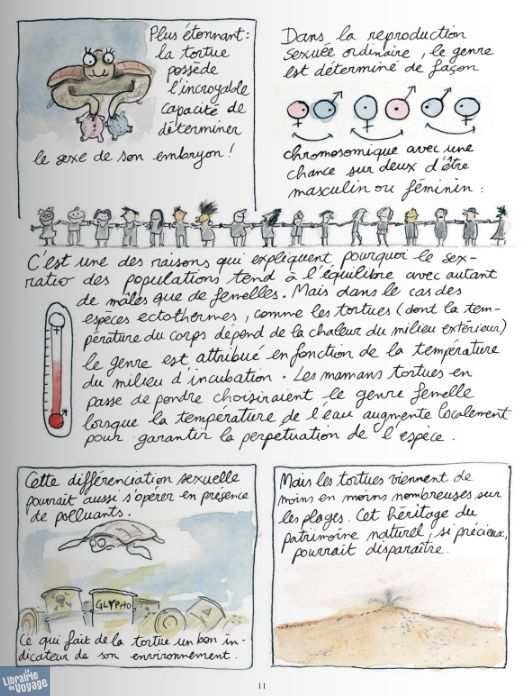 Plus étonnant :
la tortue
possède
l'incroyable
capacité de
déterminer
le sexe de son embryon !
Dans la reproduction
sexuée ordinaire, le genre
est déterminé de façon
chromosomique avec une
chance sur deux d'être
masculin ou féminin :
C'est une des raisons qui expliquent pourquoi le sex-
ratio des populations tend à l'équilibre avec autant
de mâles que de femelles. Mais dans le cas des
espèces ectothermes, comme les tortues (dont la tem-
pérature du corps dépend de la chaleur du milieu extérieur)
le genre est attribué en fonction de la température
du milieu d'incubation. Les mamans tortues en
passe de pondre choisiraient le genre femelle
lorsque la température de l'eau augmente localement
pour garantir la perpetuation de l'espèce.
Cette différenciation sexuelle
pourrait aussi s'opérer en présence
de polluants.
GLYPHO
Ce qui fait de la tortue un bon in-
dicateur de son environnement.
Mais les tortues viennent de
moins en moins nombreuses sur
les plages. Cet héritage du
patrimoine naturel, si précieux,
pourrait disparaître.
11
Librairie
du Voyage